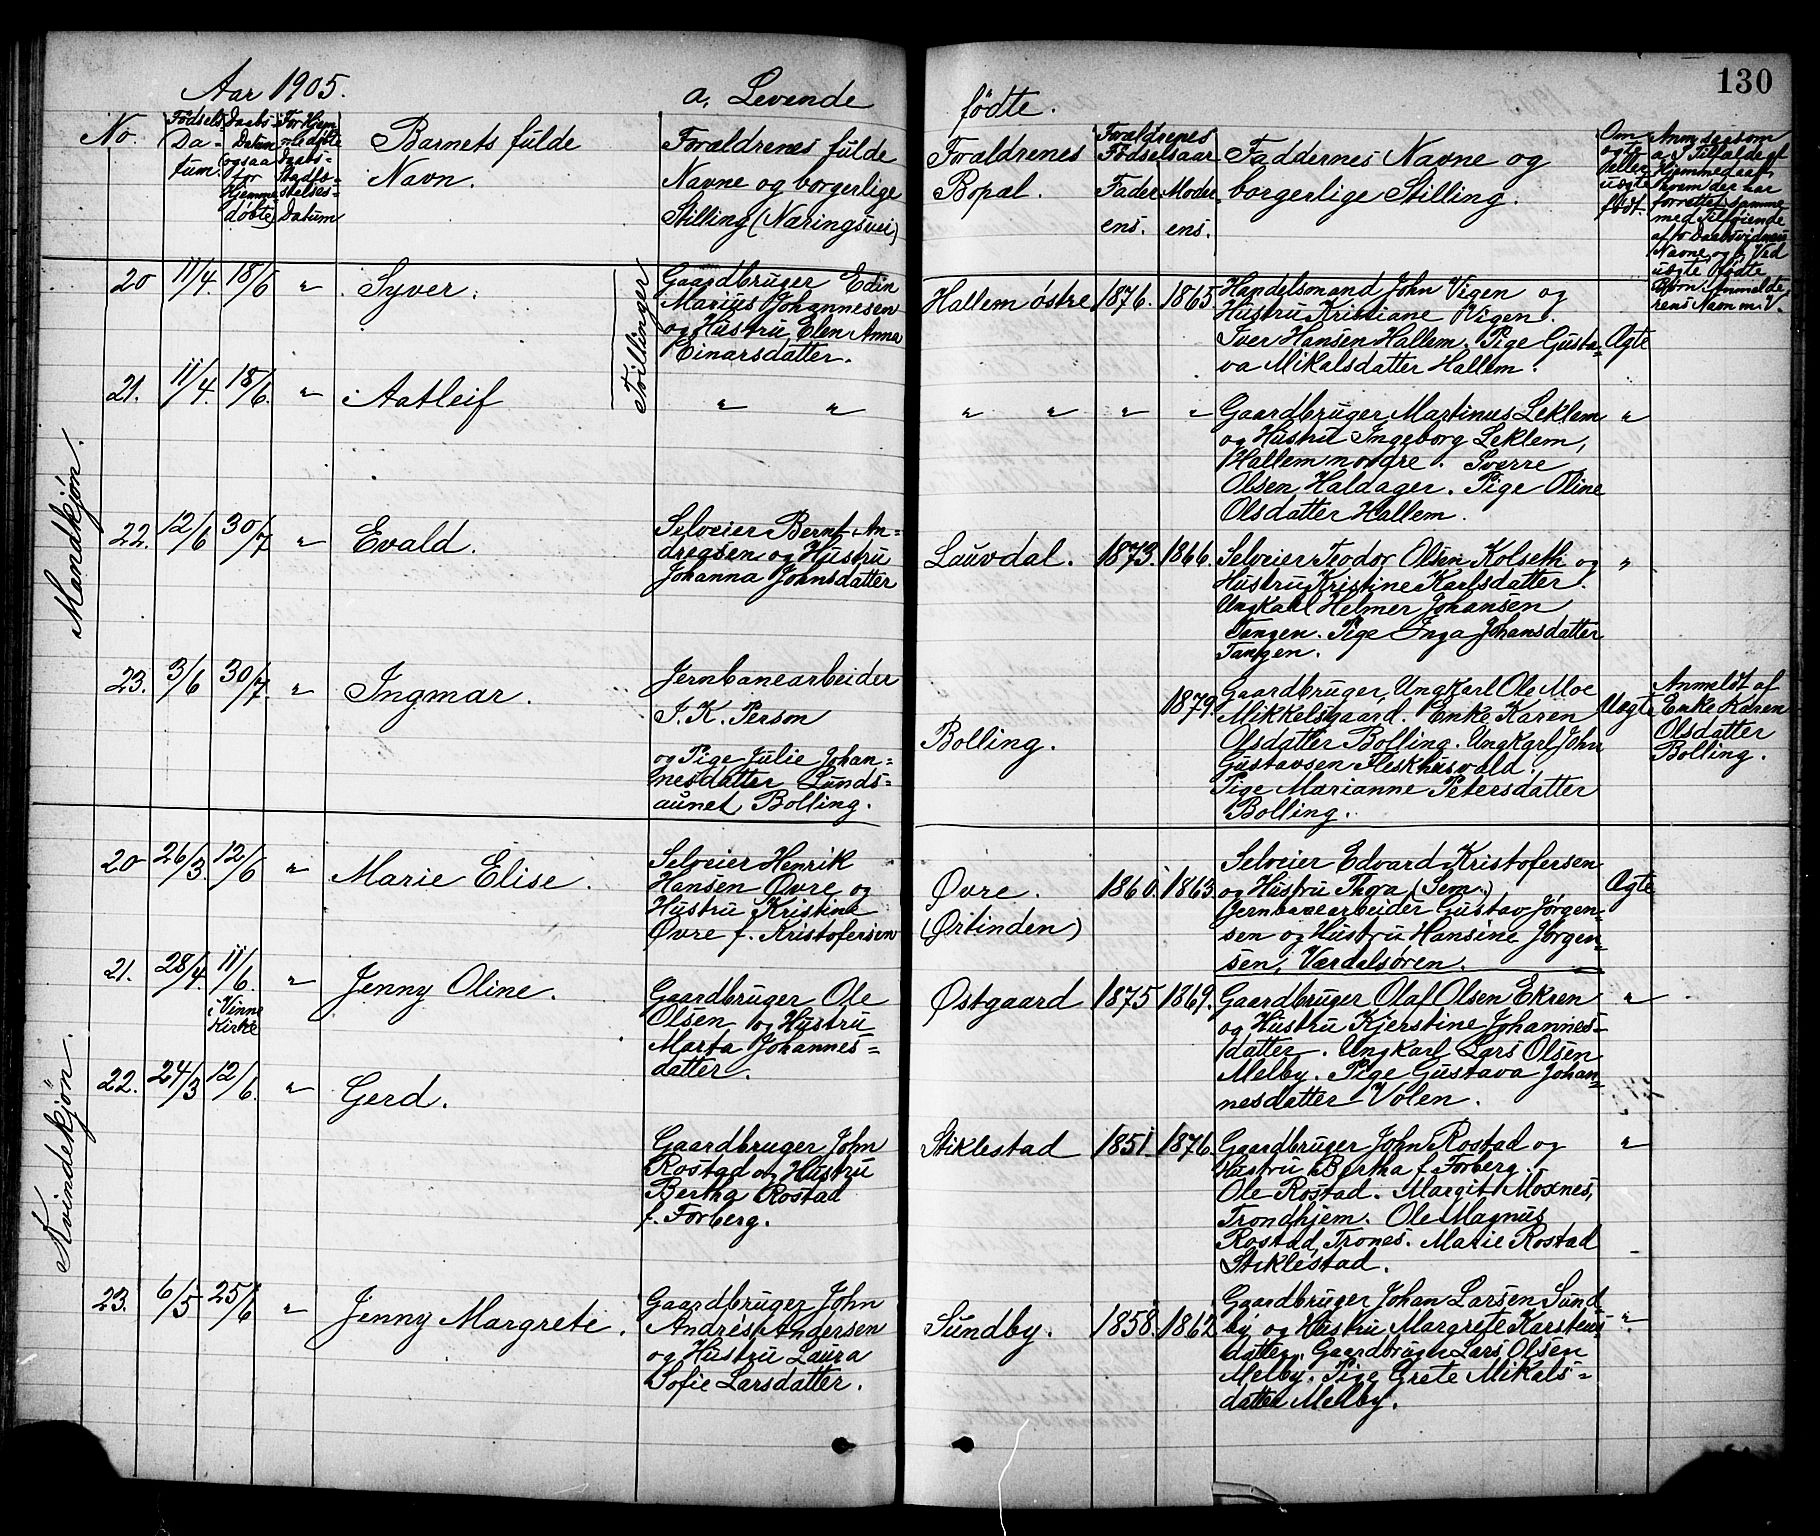 130
Aar 1905.
a, Levende
fødte.
No.
Fødsels
Da-
tum.
Daabs-
Datum
(ogsaa
for
Hjemme-
døbte)
For Hjem-
medøbte
Daabs-
Stadfæ-
stelses-
Datum
Barnets fulde
Navn.
Forældrenes fulde
Navne og borgerlige
Stilling (Næringsvei)
Forældrenes
Bopæl.
Forældrenes
Fødselsaar
Fader
ens.
Moder
ens.
Faddernes Navne og
borgerlige Stilling.
Om
ægte
eller
uægte
født.
Anm. saasom
a, I Tilfælde af
Hjemmedaab,
hvem der har
forrettet samme
med Tilføiende
af to Daabsvidners
Navne, og b, Ved
uægte fødte
Børn: Anmelde-
rens Navn m. V.
Mandkjøn.
20 11/4. 18/6 " Syver.
Tvillinger
Gaardbruger Edin
Marius Johannesen
og Hustru Elen Anna
Einarsdatter.
Hallem østre 1876. 1865.
Handelsmand John Vigen og
Hustru Kristiane Vigen.
Iver Hansen Hallem. Pige Gusta-
va Mikalsdatter Hallem.
Ægte
21. 11/4. 18/6. " Aatleif
" "
" " " "
Gaardbruger Martinus Leklem
og Hustru Ingeborg Leklem,
Hallem nordre. Sverre
Olsen Haldager. Pige Oline
Olsdatter Hallem.
"
22. 12/6 30/7 " Evald.
Selveier Bernt An-
dreasen og Hustru
Johanna Johnsdatter
Lauvdal. 1873. 1866.
Selveier Teodor Olsen Kolseth og
Hustru Kristine Karlsdatter.
Ungkarl Helmer Johansen
Tangen. Pige Inga Johansdatter
Tangen.
"
23. 3/6 30/7. " Ingmar.
Jernbanearbeider
I. K. Person
og Pige Julie Johan-
nesdatter Lunds-
aunet Bolling.
Bolling. 1879.
Gaardbruger, Ungkarl Ole Moe
Mikkelsgaard. Enke Karen
Olsdatter Bolling. Ungkarl John
Gustavsen Fleskhusvald.
Pige Marianne Petersdatter
Bolling.
Uægte
Anmeldt af
Enke Karen
Olsdatter
Bolling.
Kvindekjøn.
20 26/3. 12/6 " Marie Elise.
Selveier Henrik
Hansen Øvre og
Hustru Kristine
Øvre f. Kristofersen
Øvre.
(Ørtinden)
1860. 1863.
Selveier Edvard Kristofersen
og Hustru Thora (Sem.)
Jernbanearbeider Gustav Jørgen-
sen og Hustru Hansine Jørgen-
sen, Værdalsøren.
Ægte
21. 28/4. 11/6. " Jenny Oline.
i Vinne
Kirke
Gaardbruger Ole
Olsen og Hustru
Marta Johannes-
datter.
Østgaard 1875 1869.
Gaardbruger Olaf Olsen Ekren
og Hustru Kjerstine Johannes-
datter. Ungkarl Lars Olsen
Melby. Pige Gustava Johan-
nesdatter Volen.
"
22. 24/3 12/6. " Gerd.
Gaardbruger John
Rostad og Hustru
Bertha Rostad
f. Forberg.
Stiklestad 1851 1876.
Gaardbruger John Rostad og
Hustru Bertha f. Forberg.
Ole Rostad. Margit Moxnes,
Trondhjem. Ole Magnus
Rostad, Trones. Marie Rostad
Stiklestad.
"
23. 6/5 25/6 " Jenny Margrete.
Gaardbruger John
Andreas Andersen
og Hustru Laura
Sofie Larsdatter.
Sundby. 1858. 1862
Gaardbruger Johan Larsen Sund-
by og Hustru Margrete Karstens-
datter. Gaardbruger Lars Olsen
Melby. Pige Grete Mikals-
datter Melby.
"